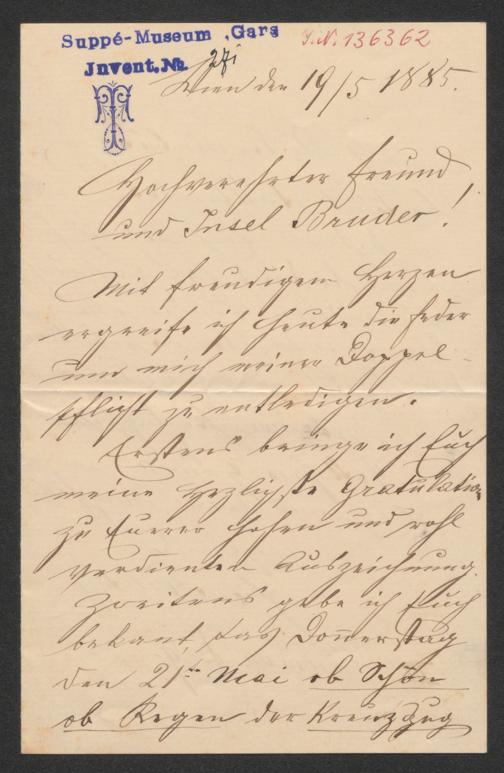 Suppé-Museum, Gars
I.N. 136362
Invent.No. 27i
Wien den 19/5 1885.
Hochverehrter Freund
und Insel Bruder!
Mit freudigem Herzen
ergreife ich heute die Feder
um mich meiner Doppel-
pflicht zu entledigen.
Erstens bringe ich Euch
meine herzlichste Gratulation
zu Eurer hohen und wohl
verdienten Auszeichnung.
Zweitens gebe ich Euch
bekannt, das Donnerstag
den 21ten Mai ob Schön
ob Regen der Kreuzzug